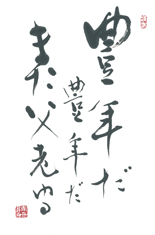 豊年だ
豊年だ
また父老ゆる